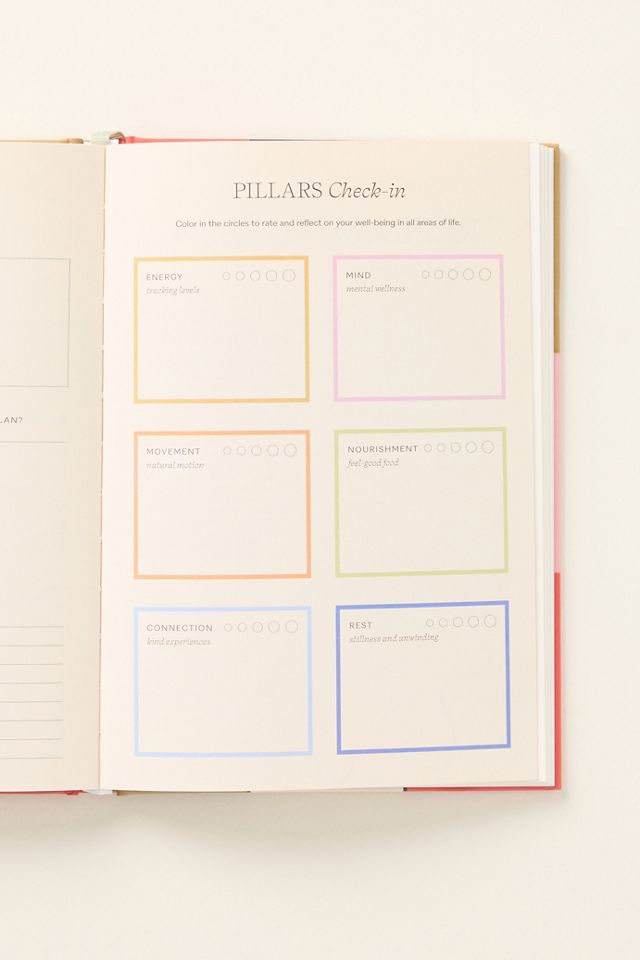 PILLARS Check-in
Color in the circles to rate and reflect on your well-being in all areas of life.
ENERGY
tracking levels
MIND
mental wellness
MOVEMENT
natural motion
NOURISHMENT
feel-good food
CONNECTION
kind experiences
REST
stillness and unwinding